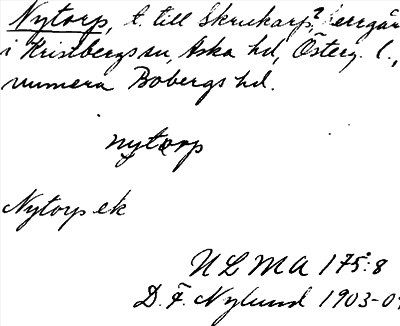 Nytorp, t. till Skrukarp, herrgår
i Kristbergs sn, Aska hd, Österg. l.,
numera Bobergs hd.
nytorp
Nytorps ek
ULMA 175:8
D. F. Nylund 1903-09